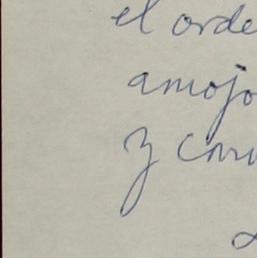 el orde
amojo
y conv